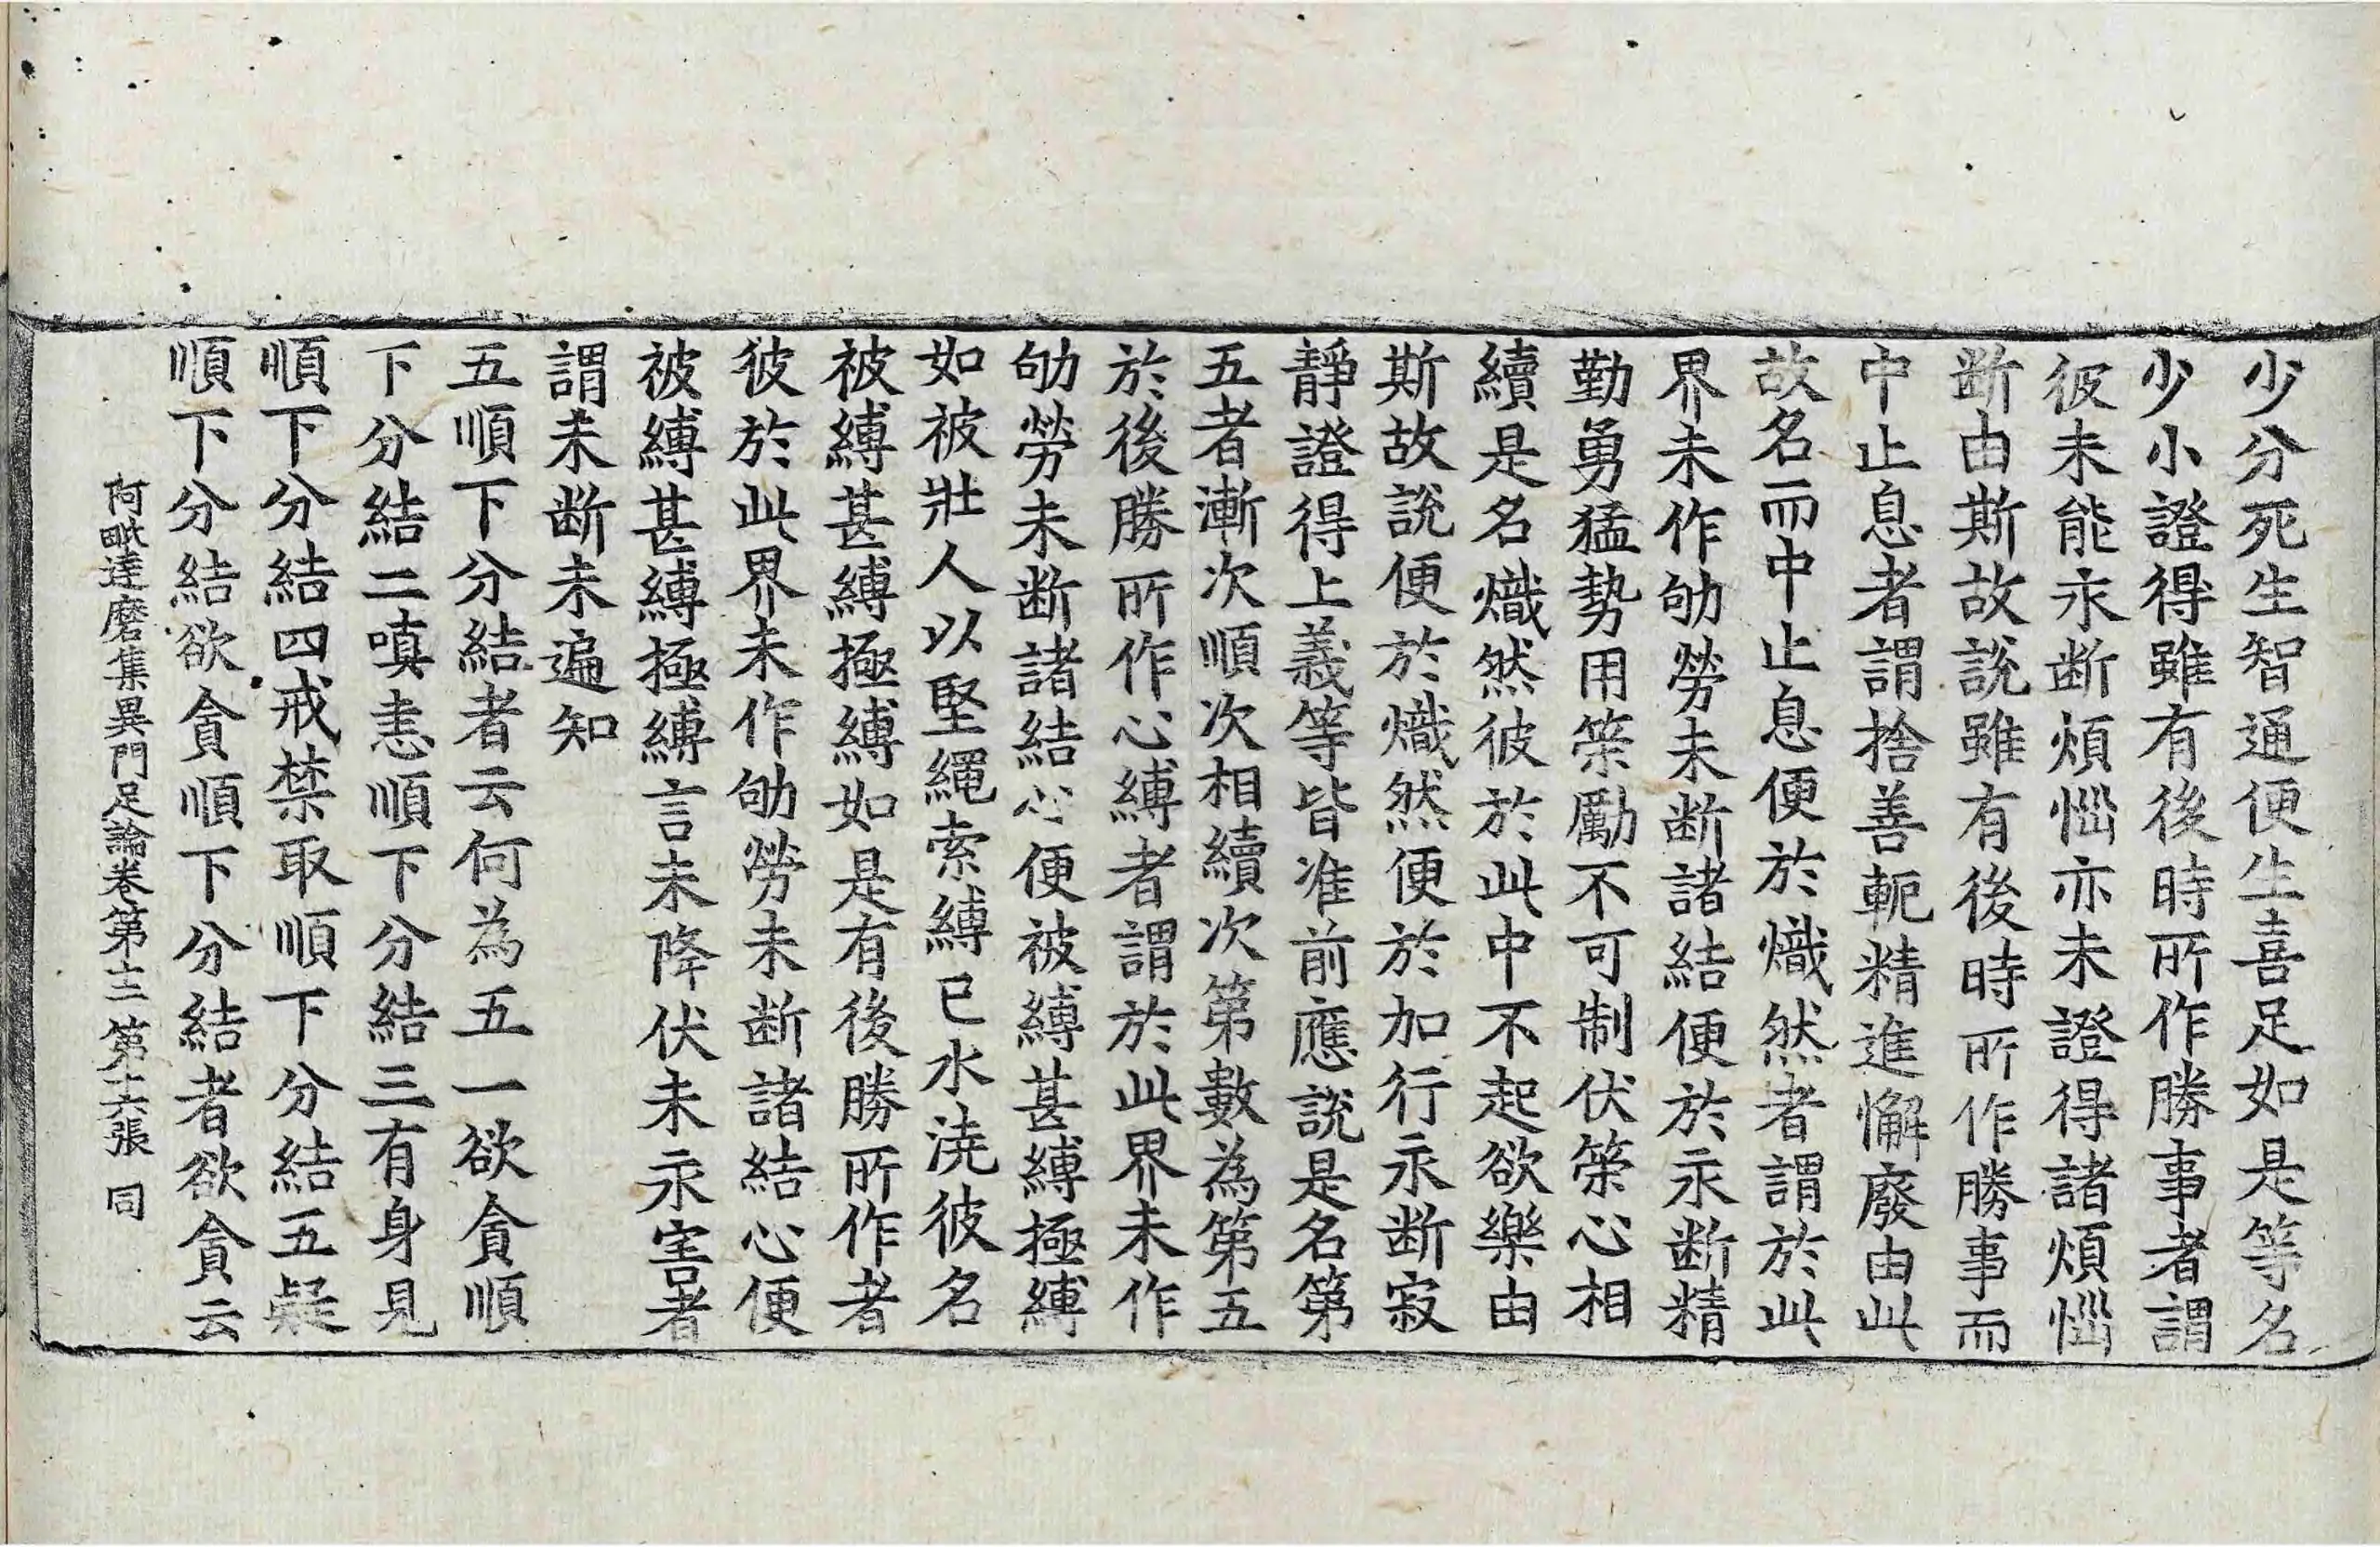 少分死生智通便生喜足如是等名
少小證得雖有後時所作勝事者謂
彼未能永断煩惱亦未證得諸煩惱
断由斯故說雖有後時所作勝事而
中止息者謂捨善軛精進懈廢由此
故名而中止息便於熾然者謂於此
界未作劬勞未断諸結便於永断精
勤勇猛勢用策勵不可制伏策心相
續是名熾然彼於此中不起欲樂由
斯故說便於熾然便於加行永断寂
靜證得上義等皆准前應說是名第
五者漸次順次相續次第數為第五
於後勝所作心縛者謂於此界未作
劬勞未断諸結心便被縛甚縛極縛
如被壯人以堅繩索縛已水澆彼名
被縛甚縛極縛如是有後勝所作者
彼於此界未作劬勞未断諸結心便
被縛甚縛極縛言未降伏未永害者
謂未断未遍知
五順下分結者云何為五一欲貪順
下分結二嗔恚順下分結三有身見
順下分結四戒禁取順下分結五疑
順下分結欲貪順下分結者欲貪云
阿毗達磨集異門足論卷第十二 第十六張 同